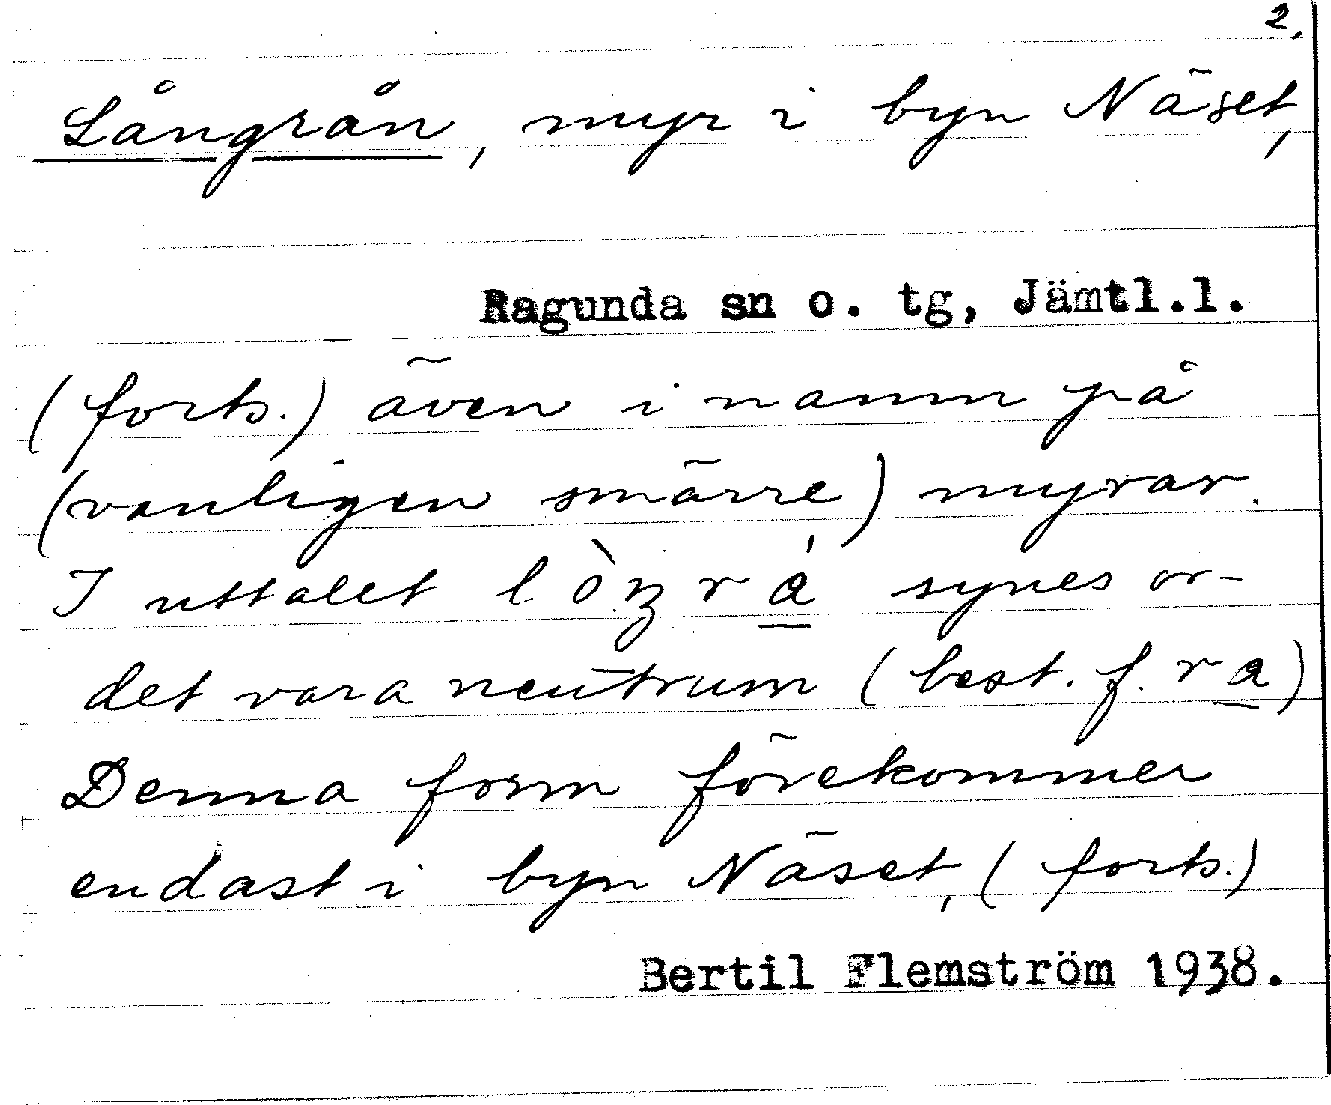 2.
Långrån, myr i byn Näset,
Ragunda sn o. tg, Jämtl.l.
(forts.) även i namn på
(vanligen smärre) myrar.
I uttalet lòŋrá synes or-
det vara neutrum (best. f. ra)
Denna form förekommer
endast i byn Näset, (forts.)
Bertil Flemström 1938.